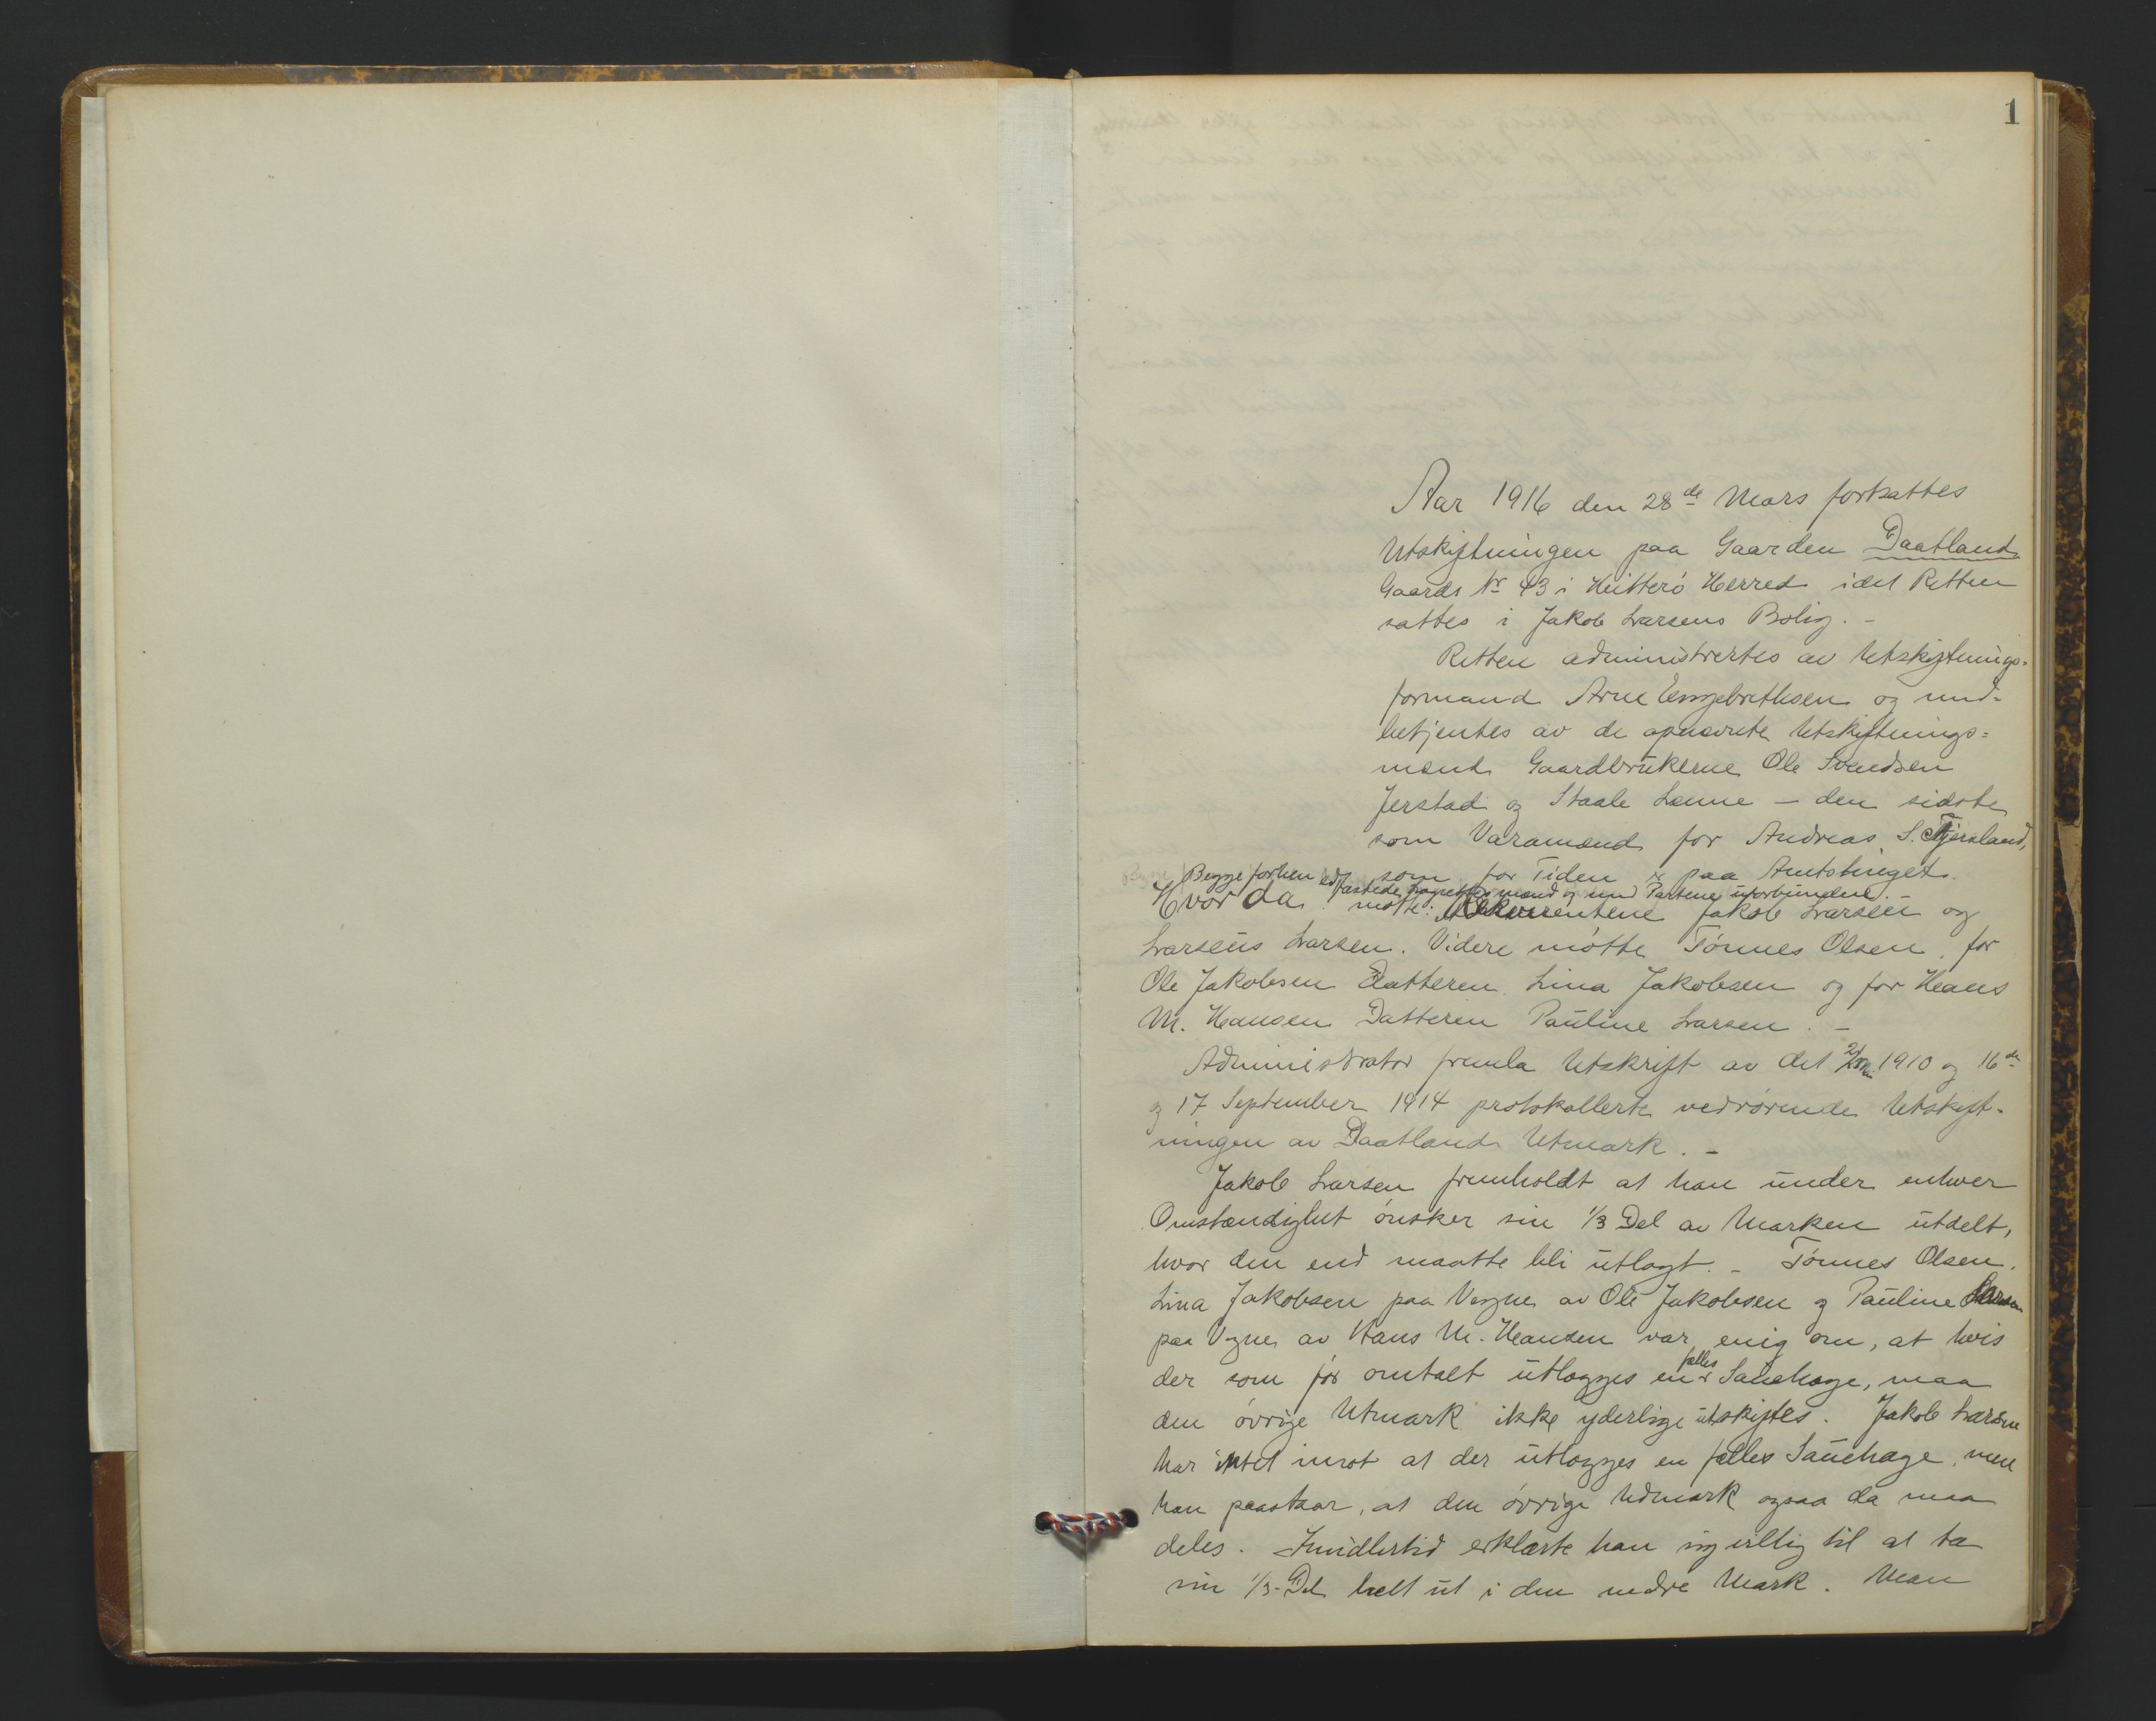 1
Aar 1916 den 28de Mars fortsattes
Utskiftningen paa Gaarden Daatland
Gaards Nr 43 i Hitterö Herred idet Retten
sattes i Jakob Larsens Bolig. -
Retten administrertes av Utskiftnings-
formand Arne Engebrethsen og med-
betjentes av de opnævnte Utskiftnings-
mænd Gaardbrukerne Ole Svendsen
Jerstad og Staale Lenne - den sidste
som Varamand for Andreas S. Fjersland,
som for Tiden er paa Amtstinget.
Begge forhen edfæstede Lagrettesmænd og med Partene uforbundene. -
Hvor da mötte: Rekvirentene Jakob Larsen og
Larseus Larsen. Videre mötte Tönnes Olsen, for
Ole Jakobsen Datteren Lina Jakobsen og for Hans
M. Hansen Datteren Pauline Larsen. -
Administrator fremla Utskrift av det 1910 og 16de
og 17 September 1914 protokollerte vedrörende Utskift-
ningen av Daatlands Utmark. -
Jakob Larsen fremholdt at han under enhver
Omstændighet önsker sin 1/3 Del av Marken utdelt,
hvor den end maatte bli utlagt. - Tönnes Olsen,
Lina Jakobsen paa Vegne av Ole Jakobsen og Pauline Larsen
paa Vegne av Hans M. Hansen var enig om, at hvis
der som för omtalt utlægges en fælles Sauehage, maa
den övrige Utmark ikke yderlige utskiftes. Jakob Larsen
har intet imot at der utlægges en fælles Sauehage, men
han paastaar, at den övrige Udmark ogsaa da maa
deles. Imidlertid erklærte han sig villig til at ta
sin 1/3-Del helt ut i den nedre Mark. Man